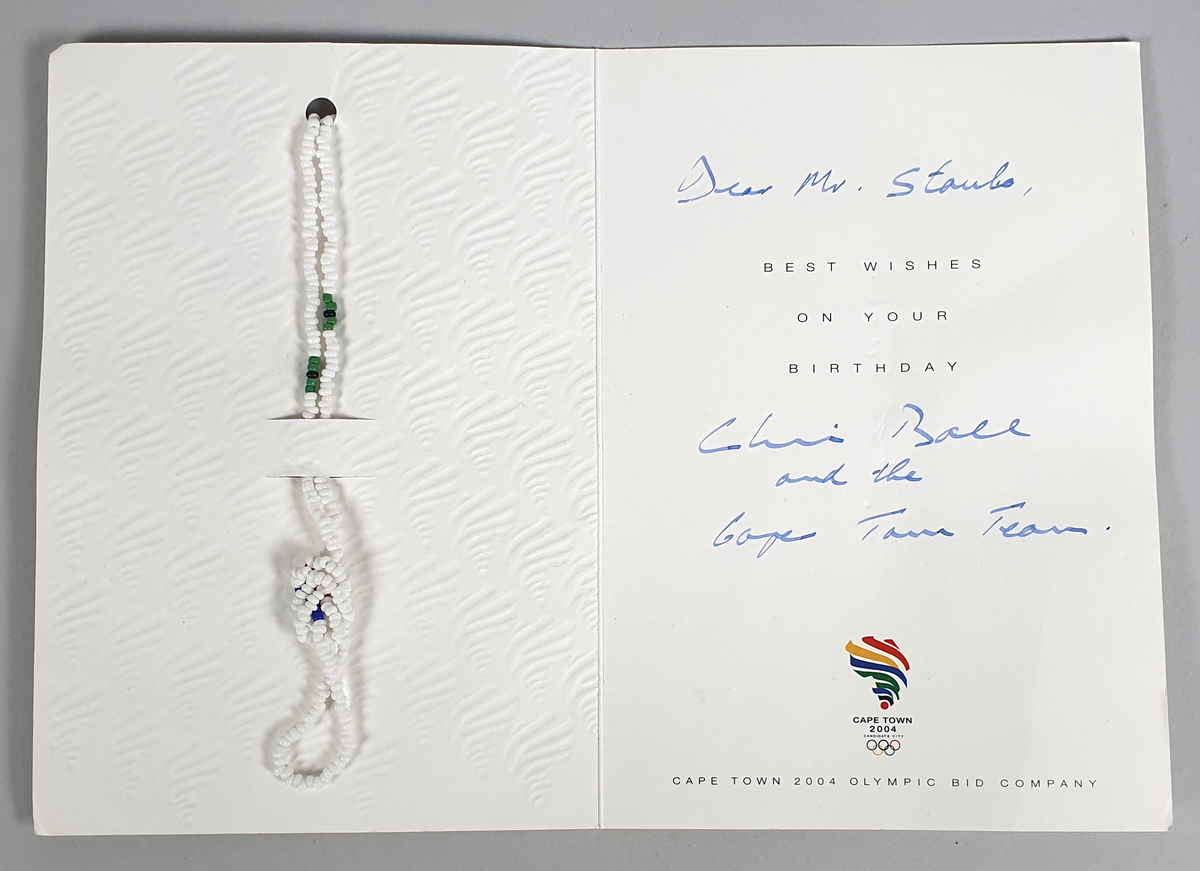 Dear Mr. Staubo,
BEST WISHES
ON YOUR
BIRTHDAY
Chris Ball
and the
Cape Town Team.
CAPE TOWN
2004
CANDIDATE CITY
CAPE TOWN 2004 OLYMPIC BID COMPANY